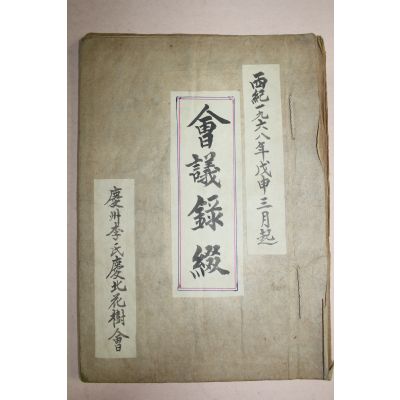 西紀一九六八年戊申三月起
會議録綴
慶州李氏慶北花樹會